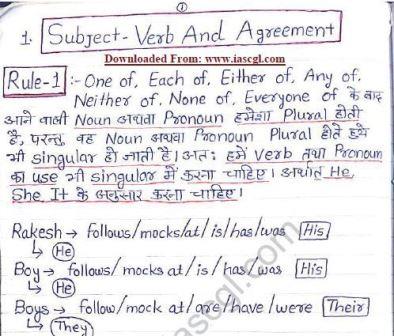 ①
1. Subject-Verb And Agreement
Downloaded From: www.iascgl.com
Rule-1 :- One of, Each of, Either of, Any of,
Neither of, None of, Everyone of के बाद
आने वाली Noun अथवा Pronoun हमेशा Plural होती
है, परन्तु वह Noun अथवा Pronoun Plural होते हुये
भी singular हो जाती है। अतः हमें Verb तथा Pronoun
का use भी singular में करना चाहिए। अर्थात् He,
She, It के अनुसार करना चाहिए।
Rakesh → follows/mocks/at/is/has/was His
↳ He
Boy → follows/mocks at/is/has/was His
↳ He
Boys → follow/mock at/are/have/were Their
↳ They
iascgl.com